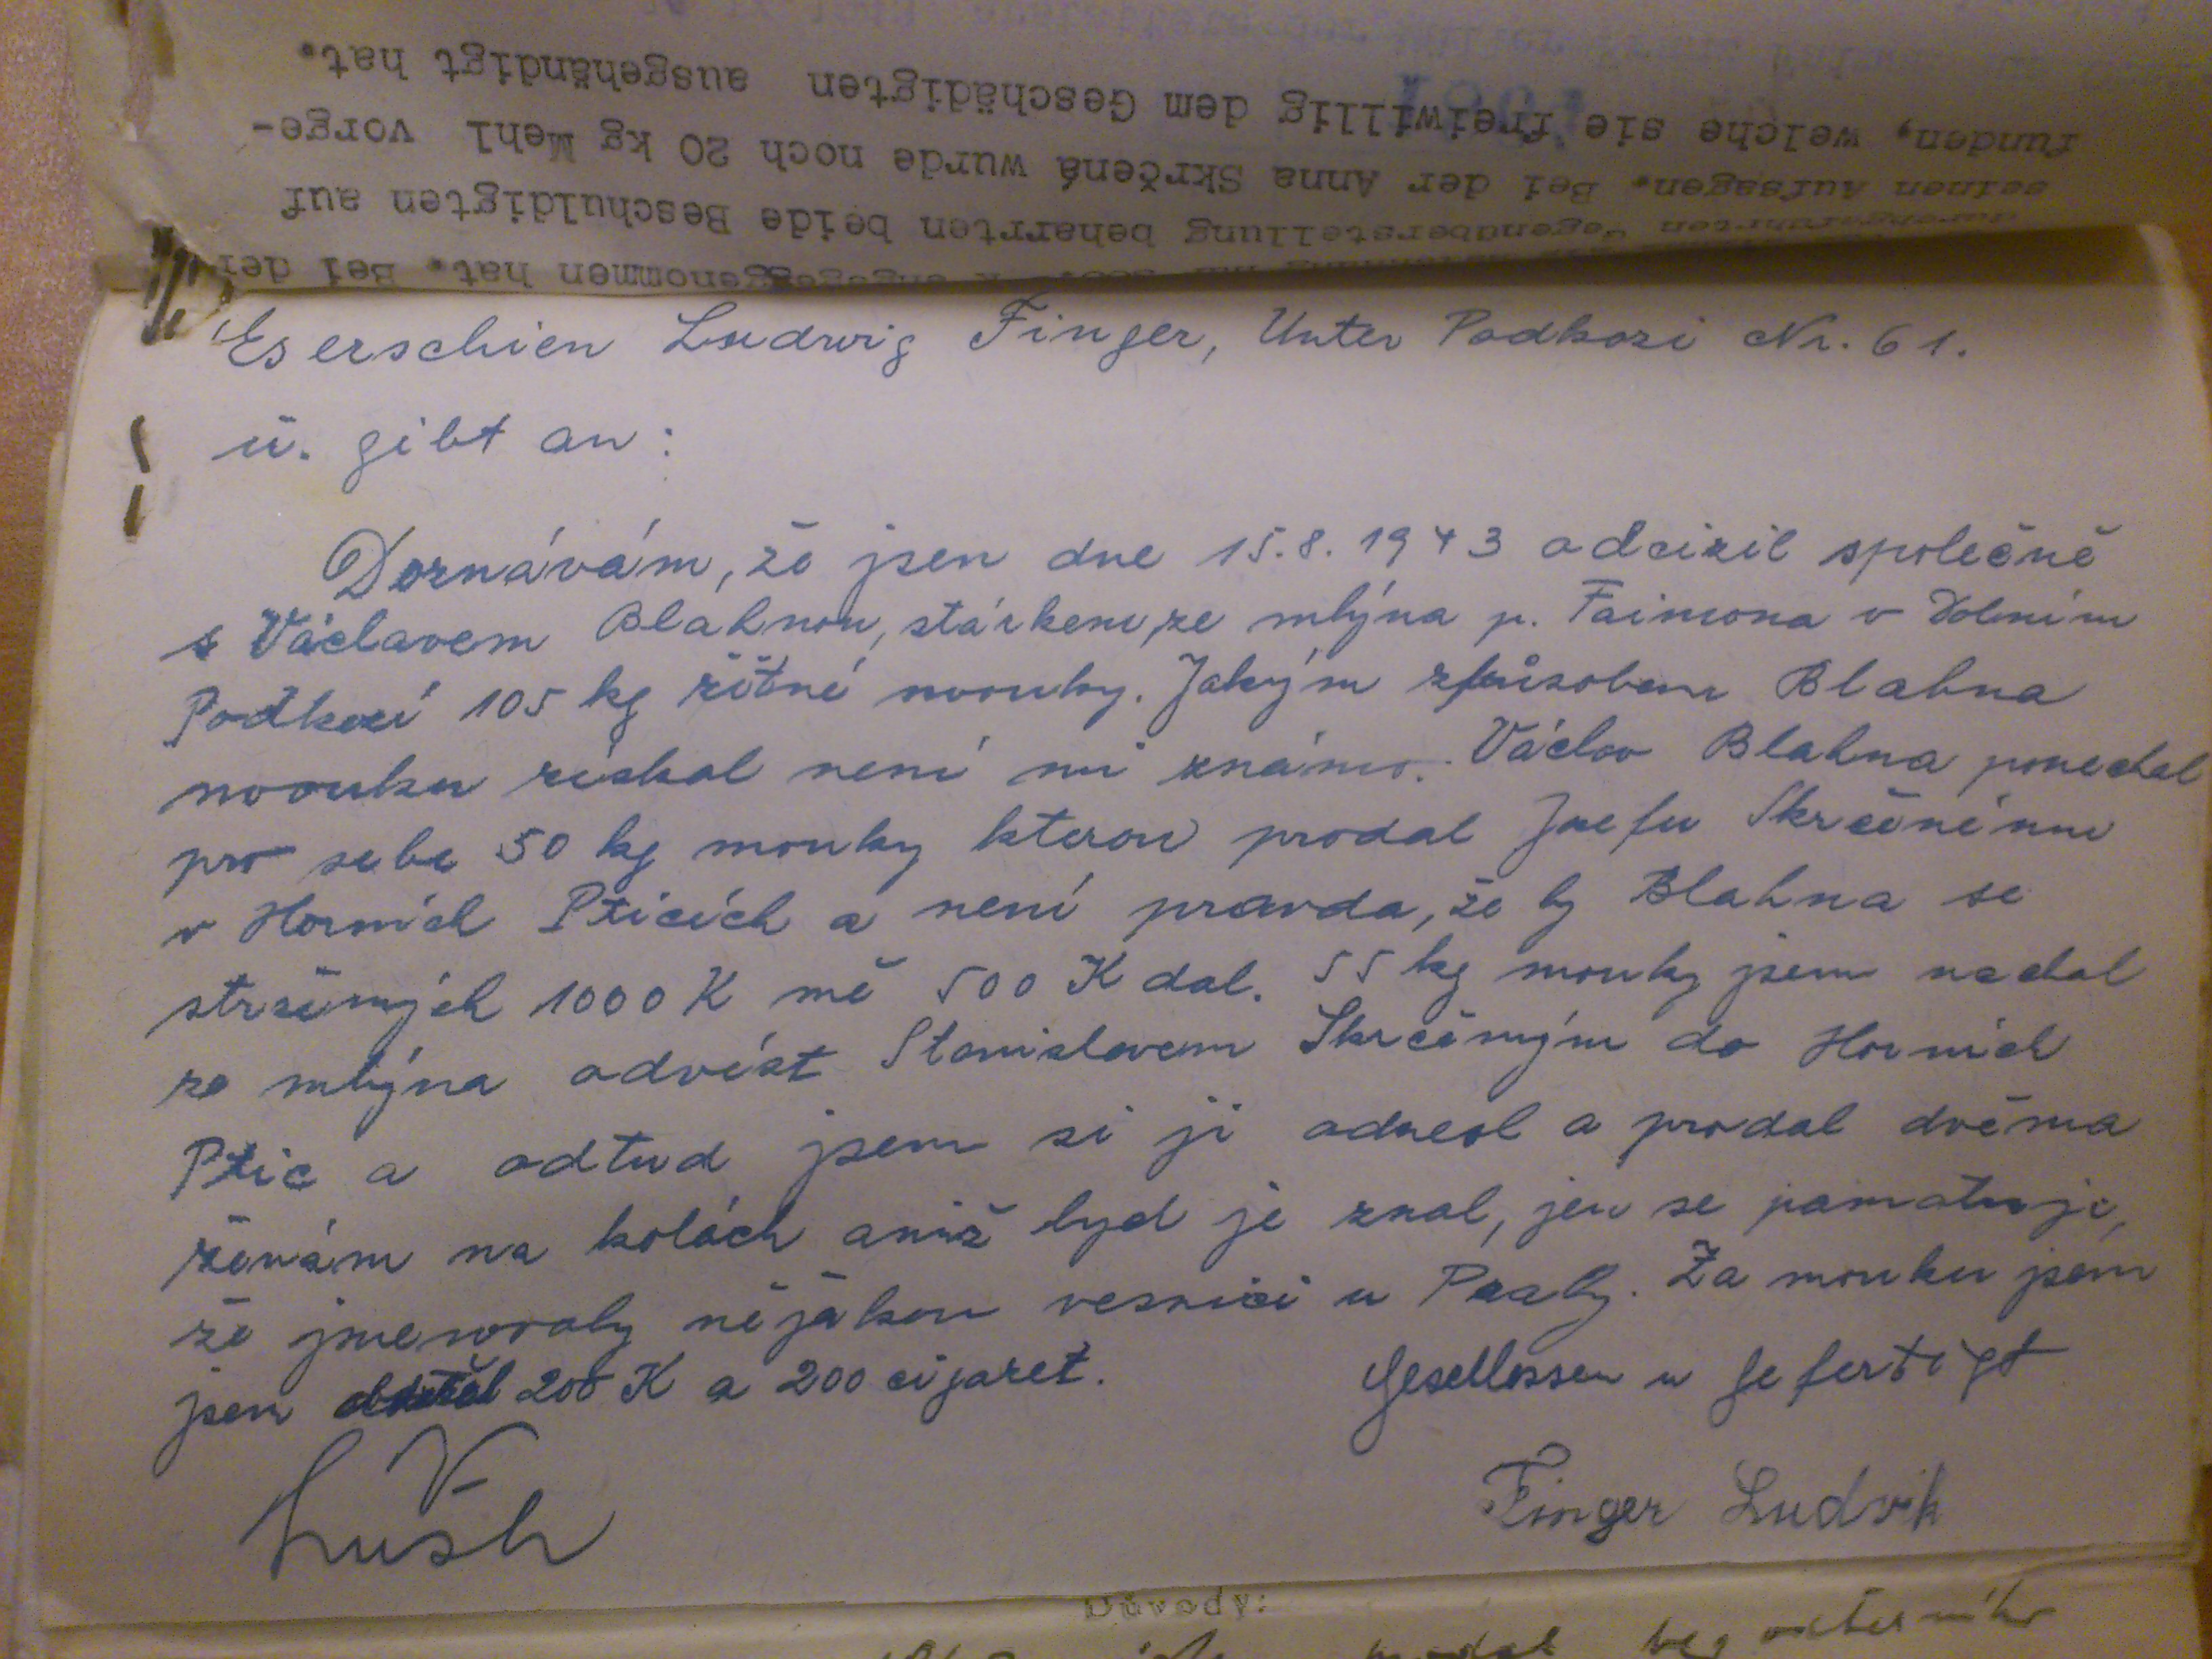 funden, welche sie freiwillig dem Geschädigten ausgehändigt hat.
seinen Aussagen. Bei der Anna Skrčená wurde noch 20 kg Mehl vorge-
Gegenüberstellung beharrten beide Beschuldigten auf
genommen hat. Bei der
Es erschien Ludwig Finger, Unter Podkozi Nr. 61.
u. gibt an:
Doznávám, že jsem dne 15.8.1943 odcizil společně
s Václavem Blahnou, stárkem, ze mlýna p. Faimona v Dolním
Podkozí 105 kg žitné mouky. Jakým způsobem Blahna
mouku získal není mi známo. Václav Blahna ponechal
pro sebe 50 kg mouky kterou prodal Josefu Skrčenému
v Horních Pticích a není pravda, že by Blahna se
stržených 1000 K mě 500 K dal. 55 kg mouky jsem nechal
ze mlýna odvést Stanislavem Skrčeným do Horních
Ptic a odtud jsem si ji odnesl a prodal dvěma
ženám na kolách aniž bych je znal, jen se pamatuji,
že jmenovaly nějakou vesnici u Prahy. Za mouku jsem
jsem 200 K a 200 cigaret.
Geschlossen u gefertigt
Finger Ludvik
Důvody: